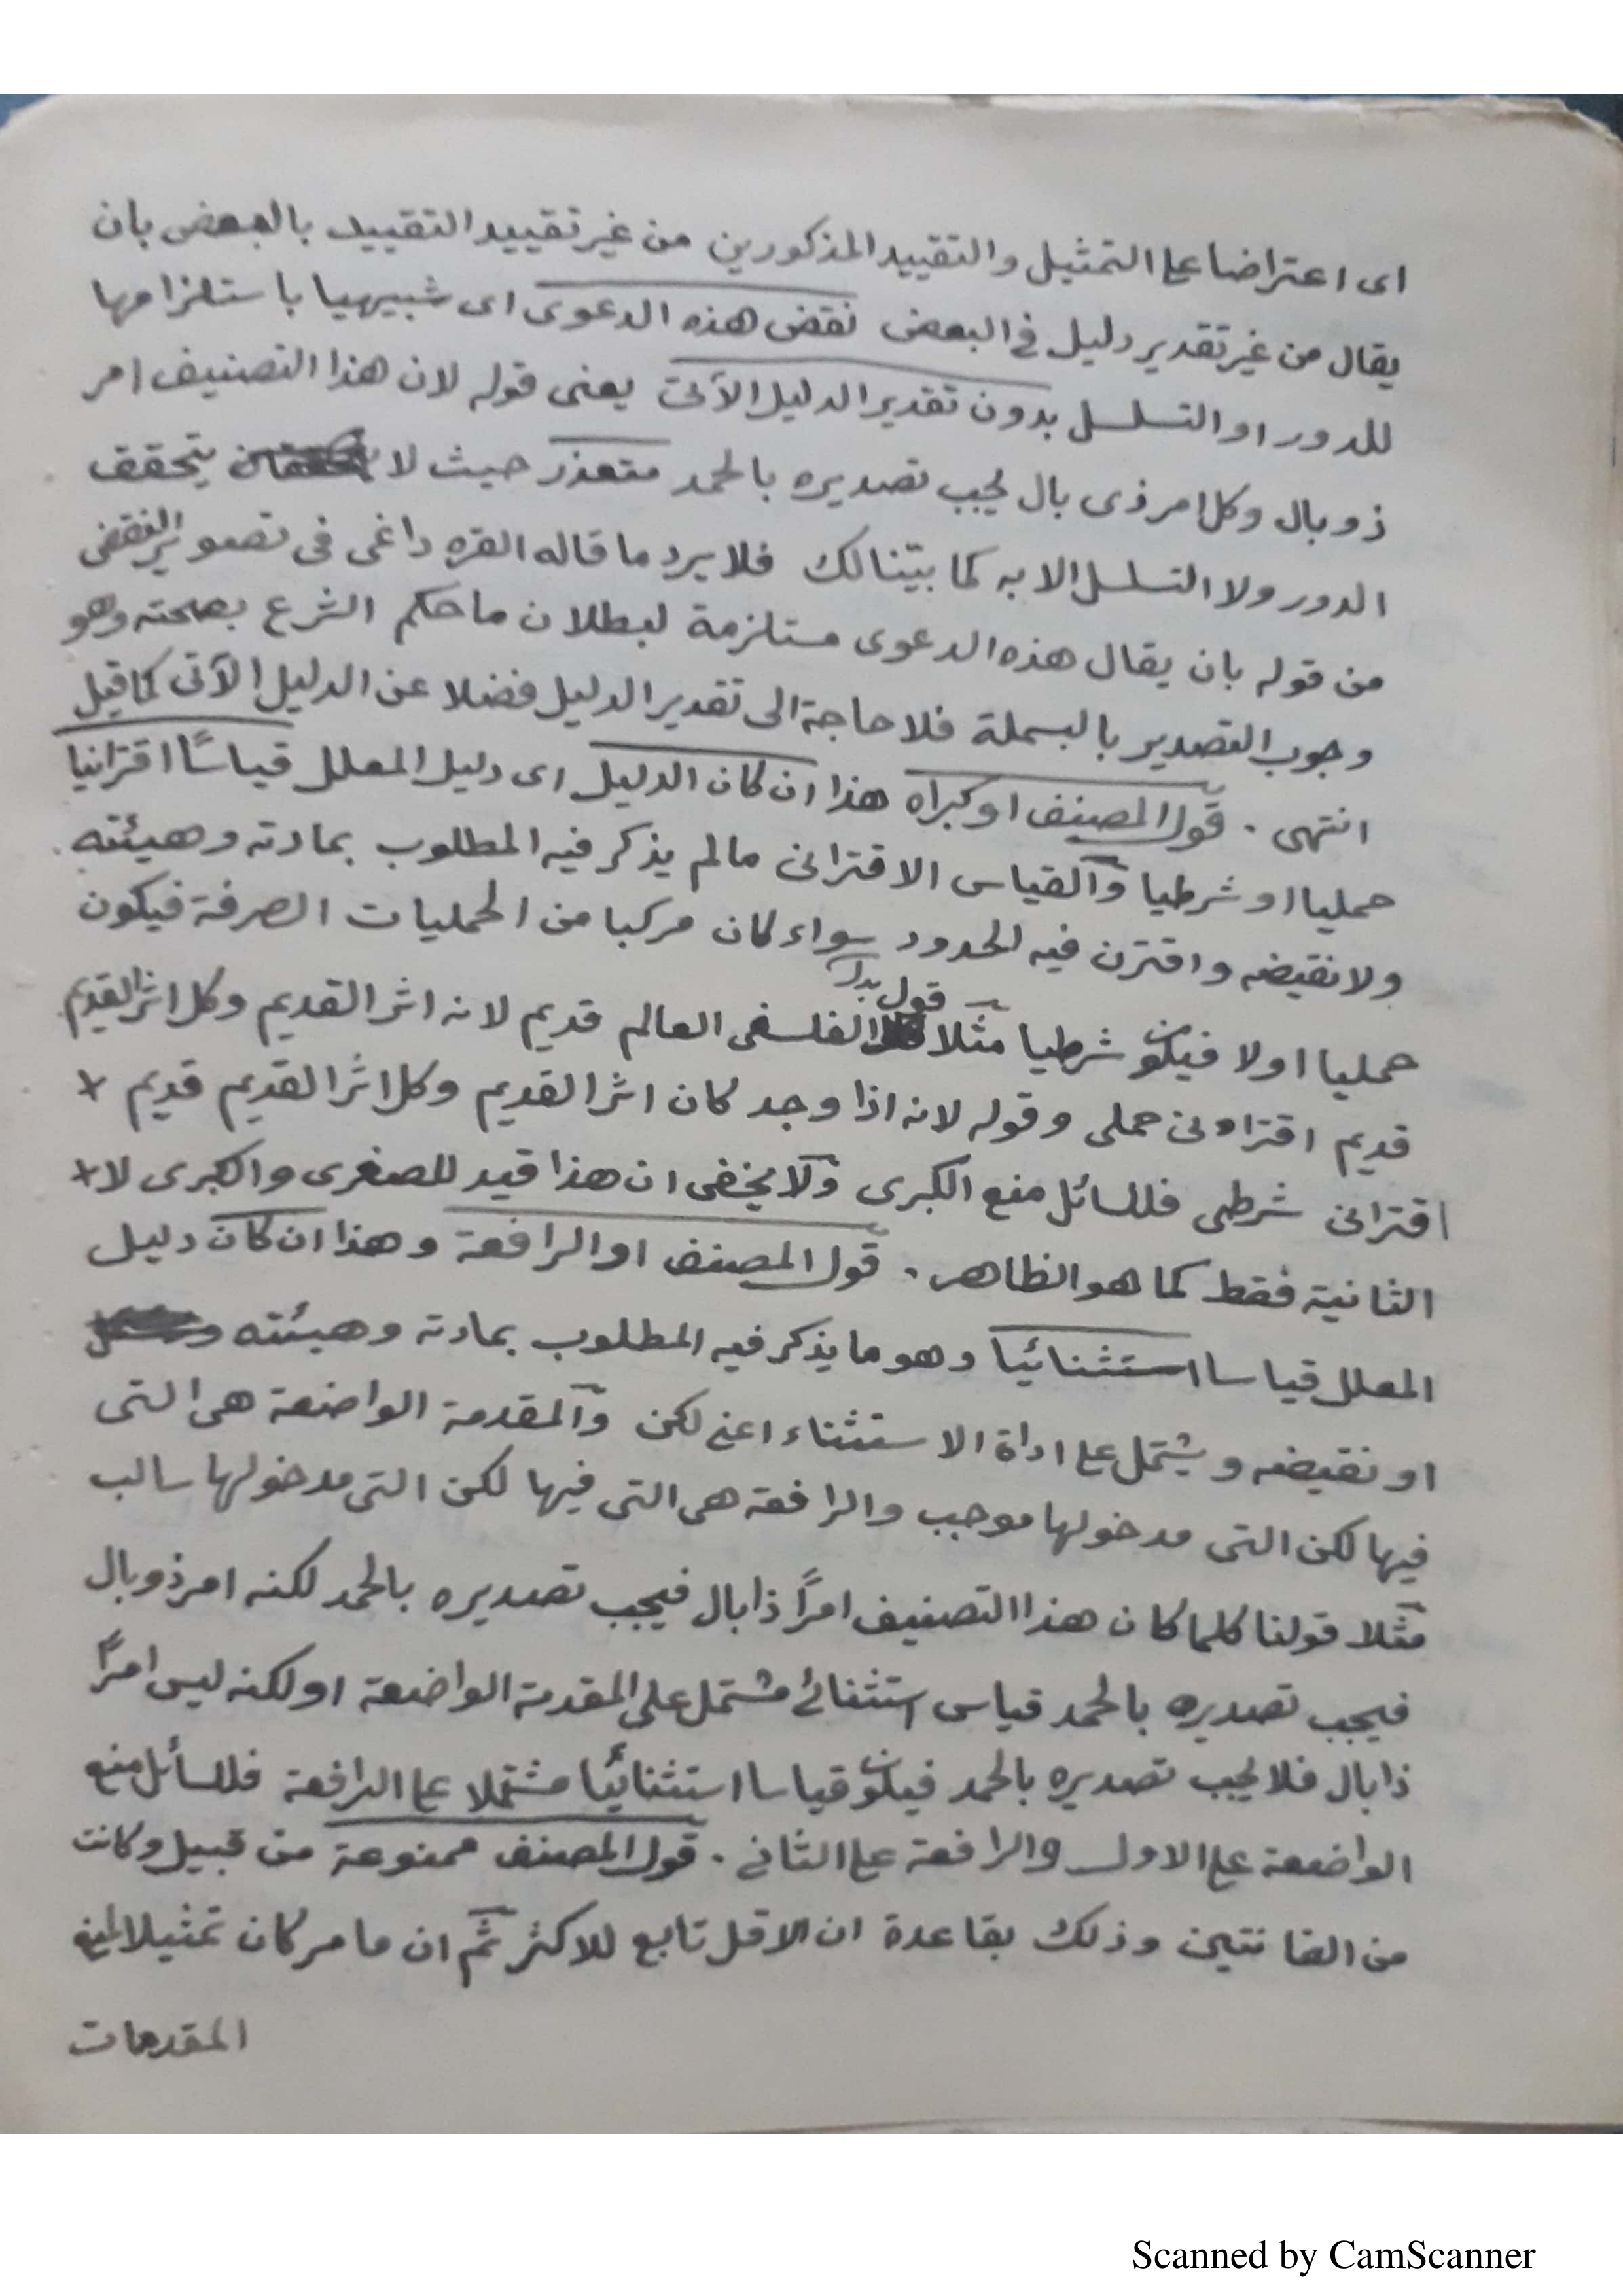 اى اعتراضا على التمثيل والتقييد المذكورين من غير تقييد التقييد بالبعض بان
يقال من غير تقدير دليل فى البعض نقض هذه الدعوى اى شبيهيا باستلزامها
للدور او التسلسل بدون تقدير الدليل الآتى يعنى قوله لان هذا التصنيف امر
ذو بال وكل امر ذى بال يجب تصديره بالحمد متعذر حيث لا يتحقق
الدور ولا التسلسل الا به كما بيّنا لك فلا يرد ما قاله القره داغى فى تصوير النقض
من قوله بان يقال هذه الدعوى مستلزمة لبطلان ما حكم الشرع بصحته وهو
وجوب التصدير بالبسملة فلا حاجة الى تقدير الدليل فضلا عن الدليل الآتى كما قيل
انتهى . قول المصنف او كبراه هذا ان كان الدليل اى دليل المعلل قياسًا اقترانيا
حمليا او شرطيا والقياس الاقترانى مالم يذكر فيه المطلوب بمادته وهيئته
ولا نقيضه واقترن فيه الحدود سواء كان مركبا من الحمليات الصرفة فيكون
حمليا اولا فيكون شرطيا مثلا قول الفلسفى العالم قديم لانه اثر القديم وكل اثر القديم
قديم اقترانى حملى وقوله لانه اذا وجد كان اثر القديم وكل اثر القديم قديم +
اقترانى شرطى فللسائل منع الكبرى ولا يخفى ان هذا قيد للصغرى والكبرى لا +
الثانية فقط كما هو الظاهر . قول المصنف او الرافعة وهذا ان كان دليل
المعلل قياسا استثنائيا وهو ما يذكر فيه المطلوب بمادته وهيئته
او نقيضه ويشتمل على اداة الاستثناء اعنى لكن والمقدمة الواضعة هى التى
فيها لكن التى مدخولها موجب والرافعة هى التى فيها لكن التى مدخولها سالب
مثلا قولنا كلما كان هذا التصنيف امرًا ذا بال فيجب تصديره بالحمد لكنه امر ذو بال
فيجب تصديره بالحمد قياس استثنائى مشتمل على المقدمة الواضعة او لكنه ليس امرًا
ذا بال فلا يجب تصديره بالحمد فيكون قياسا استثنائيا مشتملا على الرافعة فللسائل منع
الواضعة على الاول والرافعة على الثانى . قول المصنف ممنوعة من قبيل وكانت
من القانتين وذلك بقاعدة ان الاقل تابع للاكثر ثم ان ما مر كان تمثيلا لمنع
المقدمات
Scanned by CamScanner